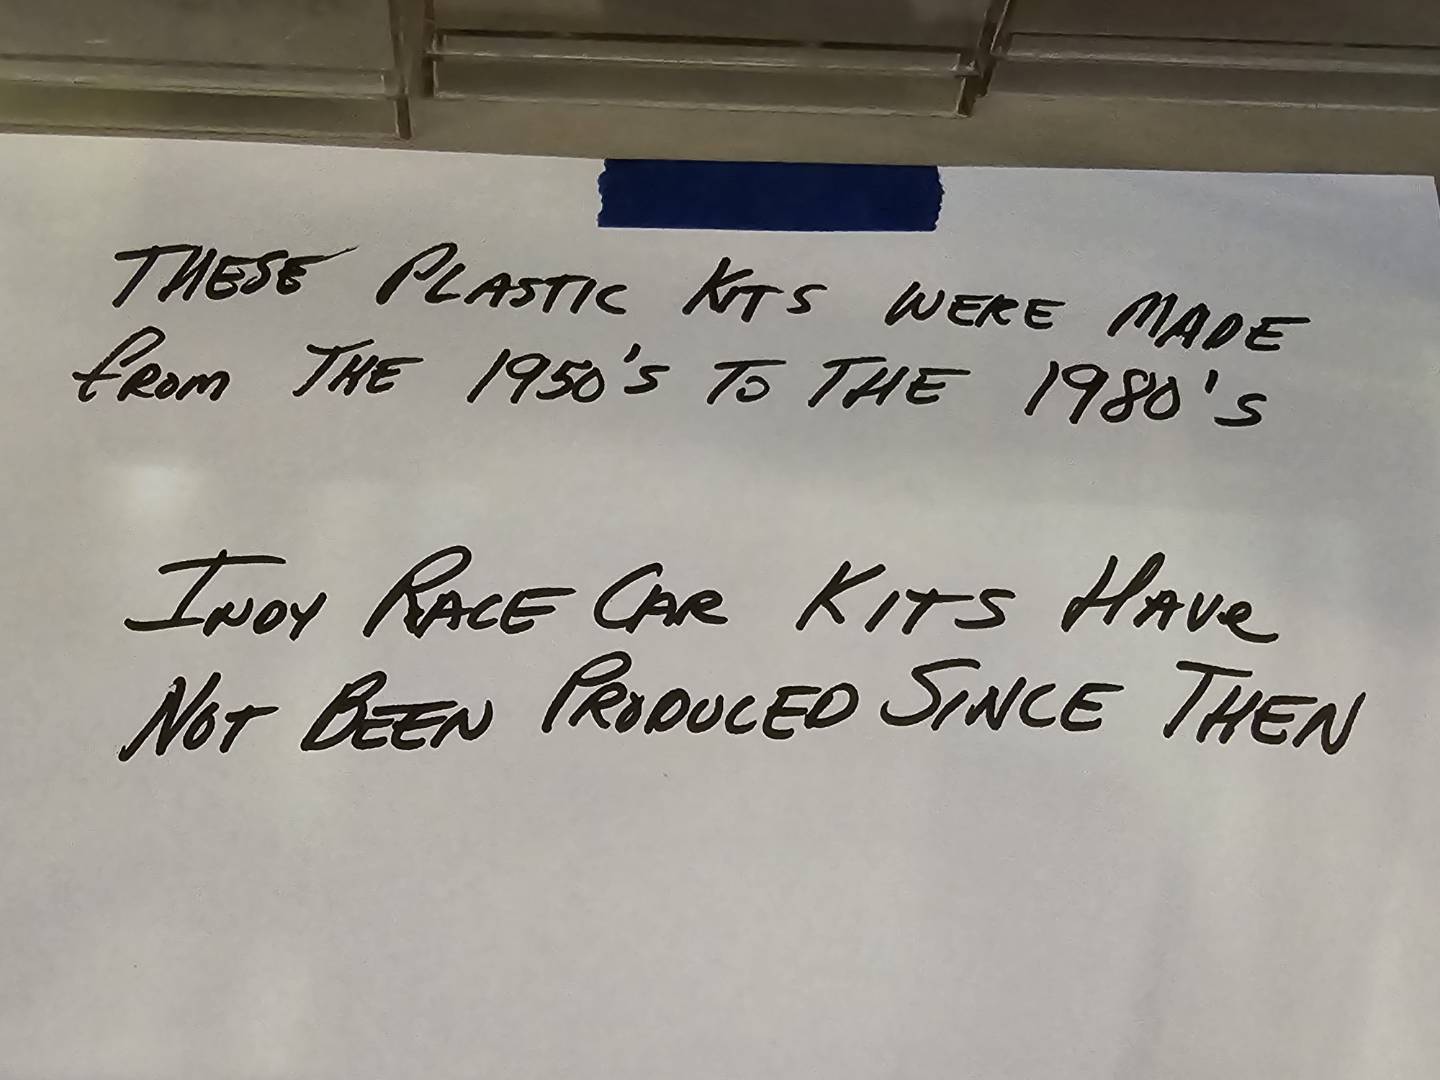 THESE PLASTIC KITS WERE MADE
FROM THE 1950's TO THE 1980's
INDY RACE CAR KITS HAVe
NOT BEEN PRODUCED SINCE THEN